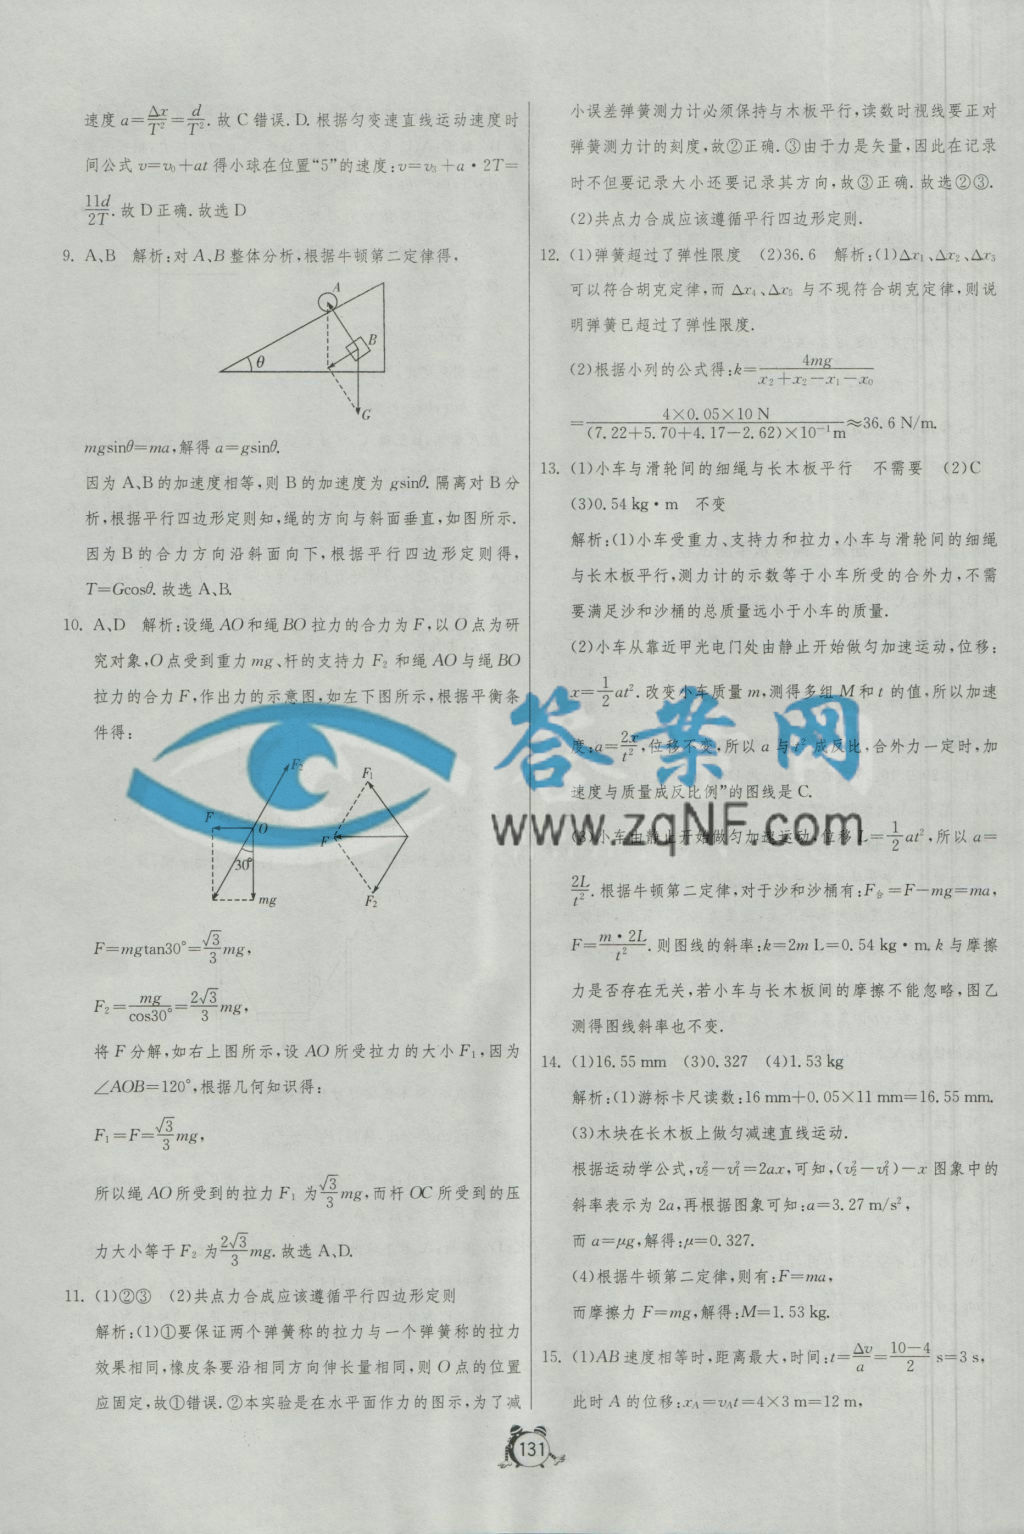 速度 a=Δx/T²=d/T².故 C 错误.D.根据匀变速直线运动速度时
间公式 v=v₀+at 得小球在位置“5”的速度:v=v₃+a·2T=
11d/2T.故 D 正确.故选 D
9. A、B 解析:对 A、B 整体分析,根据牛顿第二定律得,
A
B
θ
G
mgsinθ=ma,解得 a=gsinθ.
因为 A、B 的加速度相等,则 B 的加速度为 gsinθ.隔离对 B 分
析,根据平行四边形定则知,绳的方向与斜面垂直,如图所示.
因为 B 的合力方向沿斜面向下,根据平行四边形定则得,
T=Gcosθ.故选 A、B.
10. A、D 解析:设绳 AO 和绳 BO 拉力的合力为 F,以 O 点为研
究对象,O 点受到重力 mg、杆的支持力 F₂ 和绳 AO 与绳 BO
拉力的合力 F,作出力的示意图,如左下图所示,根据平衡条
件得:
F₂
F
O
30°
mg
F₁
F
F₂
F=mgtan30°=√3/3 mg,
F₂=mg/cos30°=2√3/3 mg,
将 F 分解,如右上图所示,设 AO 所受拉力的大小 F₁,因为
∠AOB=120°,根据几何知识得:
F₁=F=√3/3 mg,
所以绳 AO 所受到的拉力 F₁ 为√3/3 mg,而杆 OC 所受到的压
力大小等于 F₂ 为2√3/3 mg.故选 A、D.
11. (1)②③ (2)共点力合成应该遵循平行四边形定则
解析:(1)①要保证两个弹簧称的拉力与一个弹簧称的拉力
效果相同,橡皮条要沿相同方向伸长量相同,则 O 点的位置
应固定,故①错误.②本实验是在水平面作力的图示,为了减
小误差弹簧测力计必须保持与木板平行,读数时视线要正对
弹簧测力计的刻度,故②正确.③由于力是矢量,因此在记录
时不但要记录大小还要记录其方向,故③正确.故选②③.
(2)共点力合成应该遵循平行四边形定则.
12. (1)弹簧超过了弹性限度 (2)36.6 解析:(1)Δx₁、Δx₂、Δx₃
可以符合胡克定律,而 Δx₄、Δx₅ 与不现符合胡克定律,则说
明弹簧已超过了弹性限度.
(2)根据小列的公式得:k=4mg/(x₂+x₂-x₁-x₀)
=4×0.05×10 N/((7.22+5.70+4.17-2.62)×10⁻¹m)≈36.6 N/m.
13. (1)小车与滑轮间的细绳与长木板平行 不需要 (2)C
(3)0.54 kg·m 不变
解析:(1)小车受重力、支持力和拉力,小车与滑轮间的细绳
与长木板平行,测力计的示数等于小车所受的合外力,不需
要满足沙和沙桶的总质量远小于小车的质量.
(2)小车从靠近甲光电门处由静止开始做匀加速运动,位移:
x=1/2 at².改变小车质量 m,测得多组 M 和 t 的值,所以加速
度:a=2x/t²,位移不变,所以 a 与 t² 成反比,合外力一定时,加
速度与质量成反比例”的图线是 C.
(3)小车由静止开始做匀加速运动,位移 L=1/2 at²,所以 a=
2L/t².根据牛顿第二定律,对于沙和沙桶有:F合=F-mg=ma,
F=m·2L/t².则图线的斜率:k=2m L=0.54 kg·m.k 与摩擦
力是否存在无关,若小车与长木板间的摩擦不能忽略,图乙
测得图线斜率也不变.
14. (1)16.55 mm (3)0.327 (4)1.53 kg
解析:(1)游标卡尺读数:16 mm+0.05×11 mm=16.55 mm.
(3)木块在长木板上做匀减速直线运动.
根据运动学公式,v₂²-v₁²=2ax,可知,(v₂²-v₁²)-x 图象中的
斜率表示为 2a,再根据图象可知:a=3.27 m/s²,
而 a=μg,解得:μ=0.327.
(4)根据牛顿第二定律,则有:F=ma,
而摩擦力 F=mg,解得:M=1.53 kg.
15. (1)AB 速度相等时,距离最大,时间:t=Δv/a=(10-4)/2 s=3 s,
此时 A 的位移:xA=vAt=4×3 m=12 m,
答案网
www.zqNF.com
131